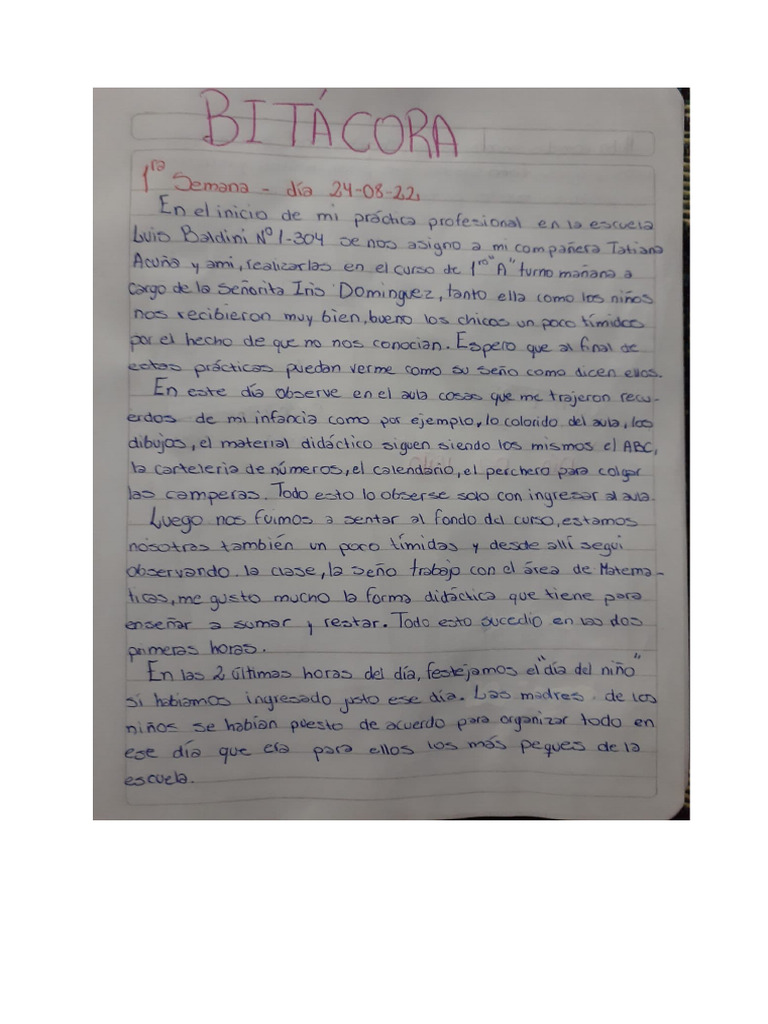 BITÁCORA
1ra Semana - día 24-08-22.
En el inicio de mi práctica profesional en la escuela
Luis Baldini Nº 1-304 se nos asigno a mi compañera Tatiana
Acuña y ami, realizarlas en el curso de 1ro "A" turno mañana a
cargo de la Señorita Iris Dominguez, tanto ella como los niños
nos recibieron muy bien, bueno los chicos un poco tímidos
por el hecho de que no nos conocian. Espero que al final de
estas prácticas puedan verme como su seño como dicen ellos.
En este día observe en el aula cosas que me trajeron recu-
erdos de mi infancia como por ejemplo, lo colorido del aula, los
dibujos, el material didáctico siguen siendo los mismos el ABC,
la carteleria de números, el calendario, el perchero para colgar
las camperas. Todo esto lo observe solo con ingresar al aula.
Luego nos fuimos a sentar al fondo del curso, estamos
nosotras también un poco tímidas y desde allí segui
observando la clase, la seño trabajo con el área de Matema-
ticas, me gusto mucho la forma didáctica que tiene para
enseñar a sumar y restar. Todo esto sucedio en las dos
primeras horas.
En las 2 últimas horas del día, festejamos el "día del niño"
si habiamos ingresado justo ese día. Las madres de los
niños se habían puesto de acuerdo para organizar todo en
ese día que era para ellos los más peques de la
escuela.